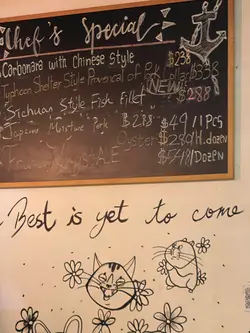 Chef's Special
Carbonara with Chinese style $238
Typhoon Shelter Style Provencal $338
NEW
Sichuan Style Fish Fillet $288
Pork $238 $49/1PCS
Oyster $289/H.dozen
$548/Dozen
Best is yet to come